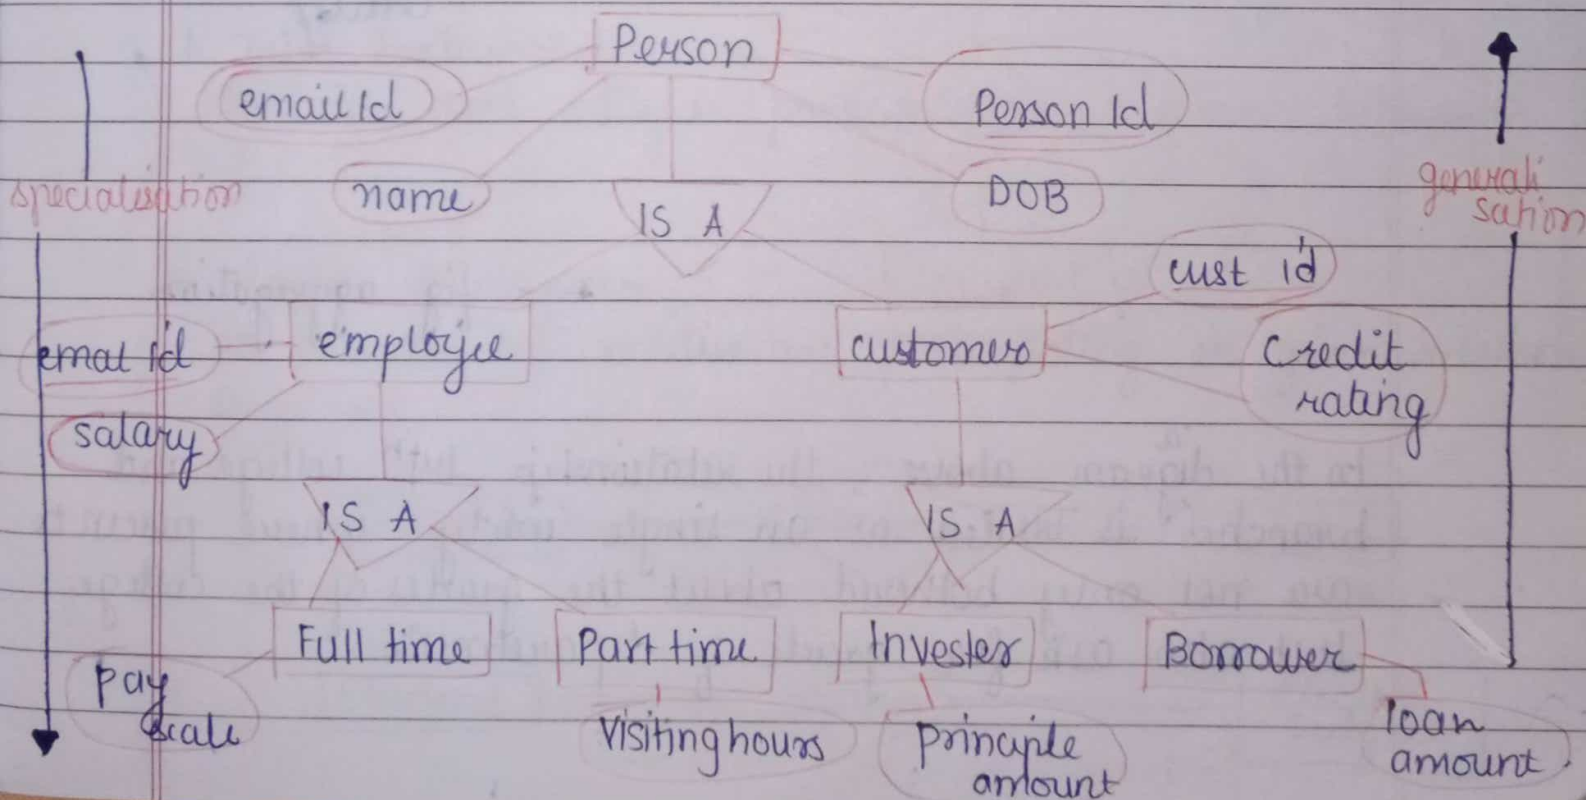 Person
email Id
Person Id
specialisation
name
DOB
generali
sation
IS A
cust id
emai id
employee
customer
credit
rating
salary
IS A
IS A
Full time
Part time
Invester
Borrower
pay
scale
visiting hours
principle
amount
loan
amount